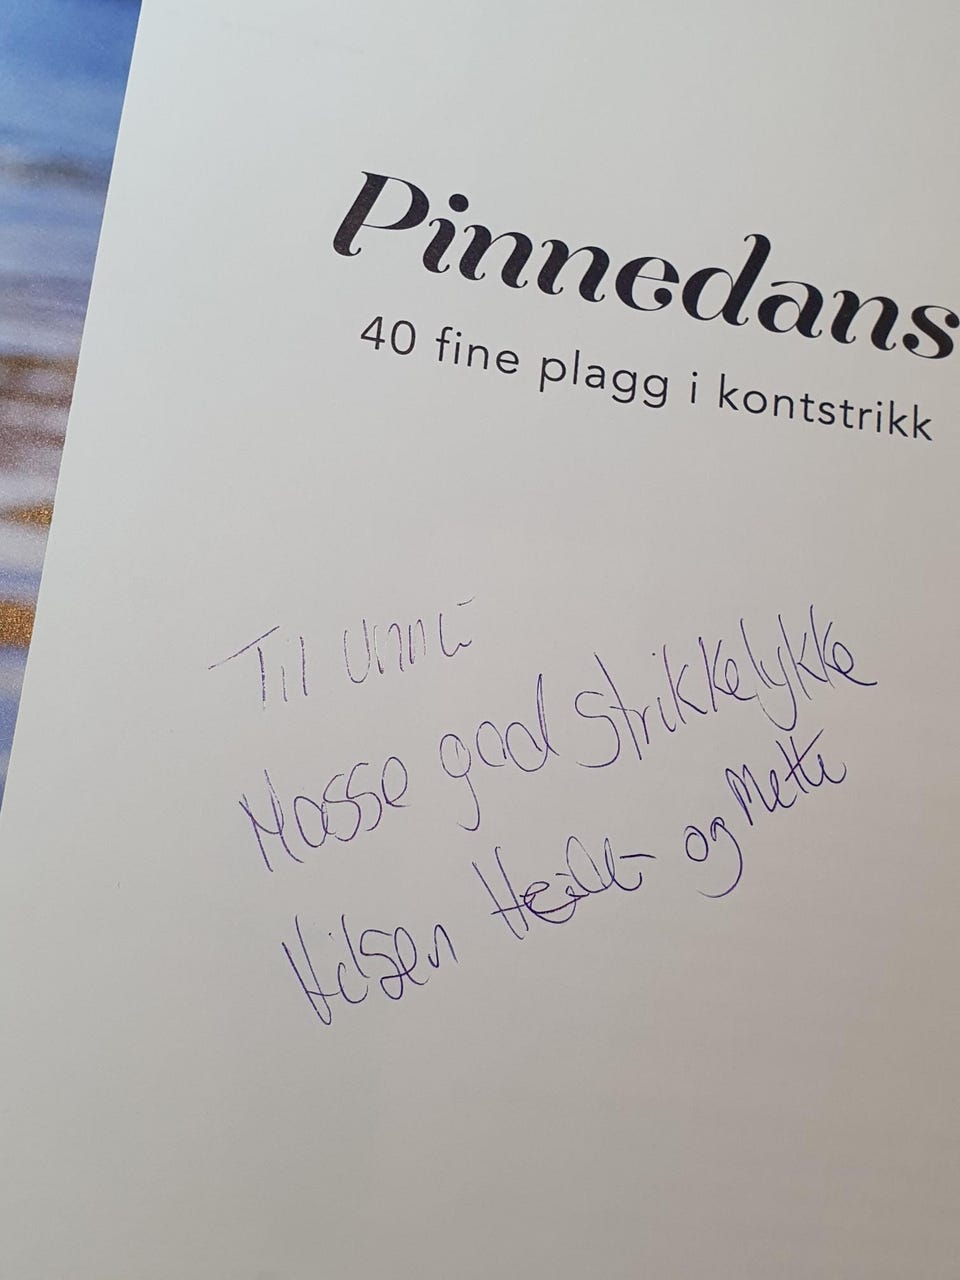 Pinnedans
40 fine plagg i kontstrikk
Til Unni
Masse god strikkelykke
Hilsen Heidi og Mette